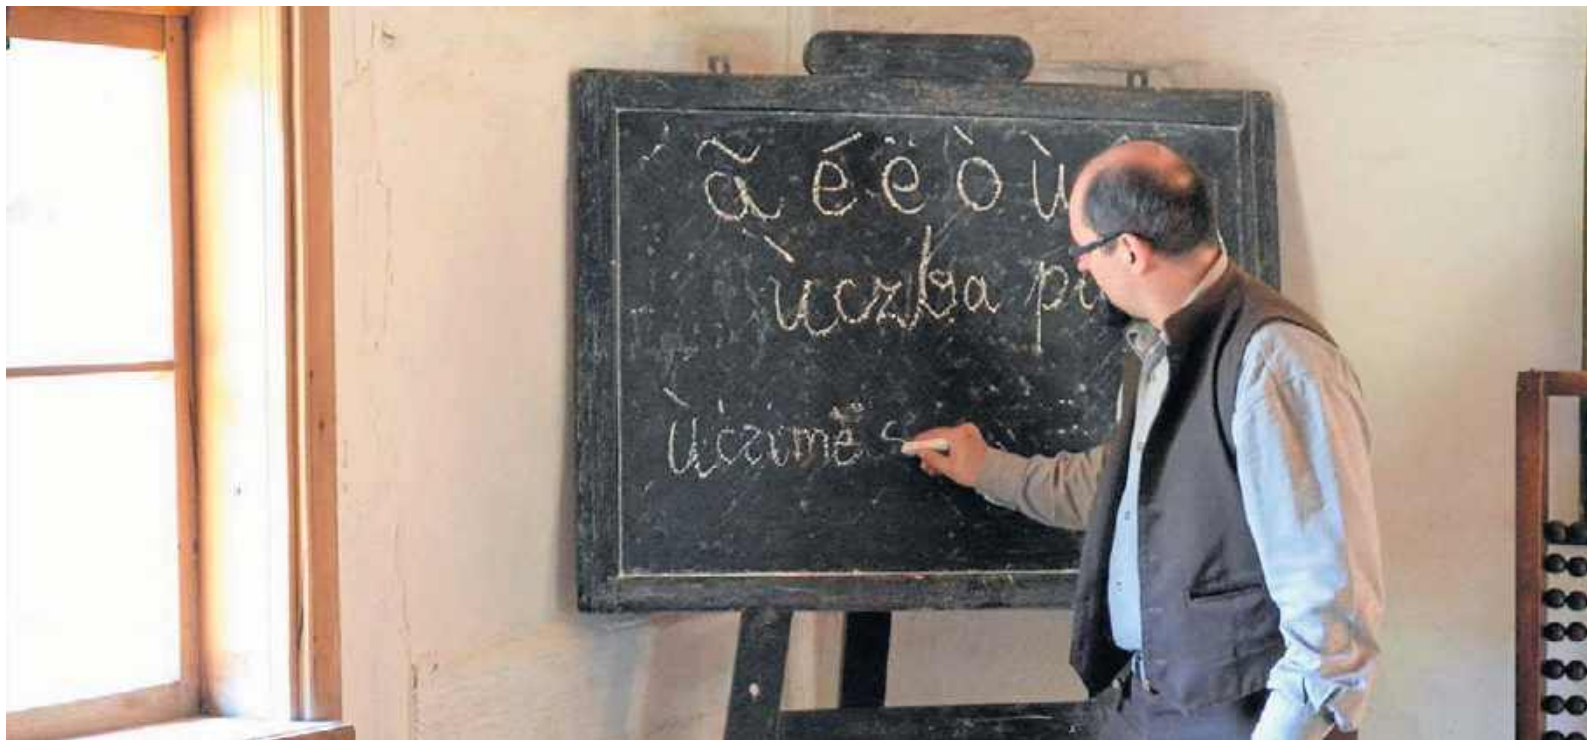 ã é ë ò ù
ùczba
Ùczimë